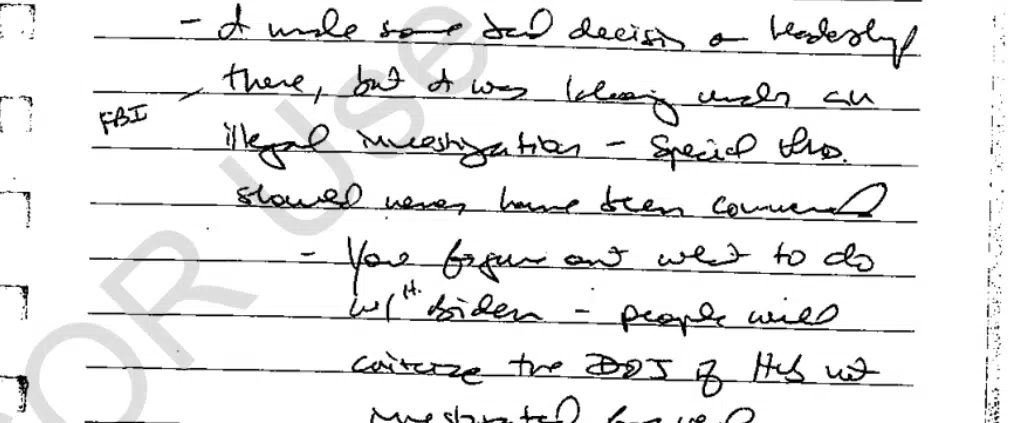 - I made some bad decisions on leadership
there, but I was laboring under an
FBI
illegal investigation - Special Pros.
should never have been commenced
- You figure out what to do
w/ H. Biden - people will
criticize the DOJ if He's not
investigated for real
FOR USE